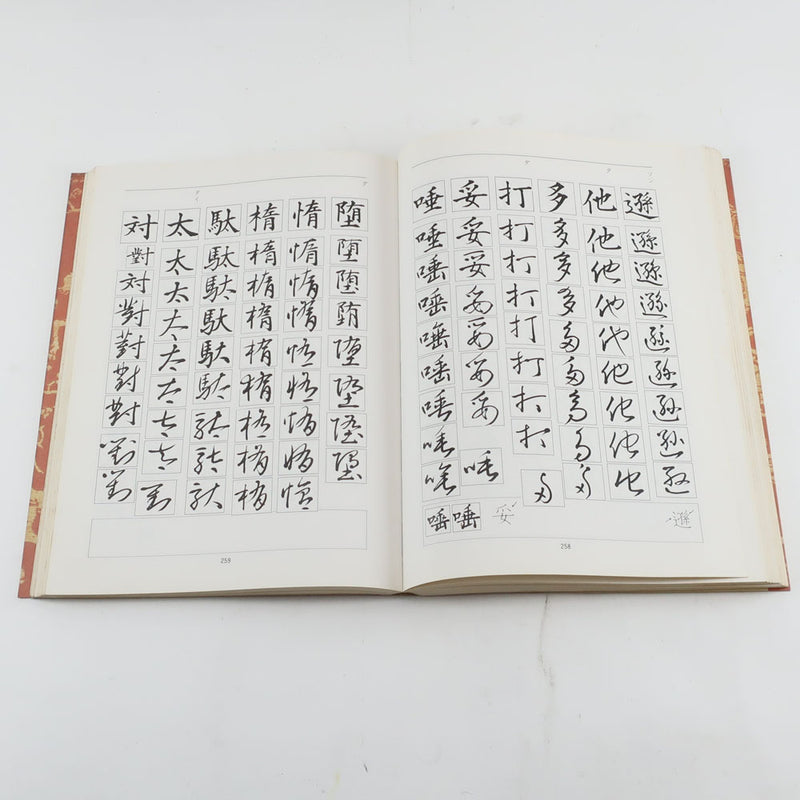 ソ
タ
タ
遜遜遜遜遜遜遜遜遜
他他他他他他他他他
多多多多多多多多多
多
打打打打打打打打
妥妥妥妥妥妥妥
唾
唾唾唾唾唾唾唾唾唾
遜
妥
唾唾
258
タ
タイ
堕堕堕堕堕堕堕堕
惰惰惰惰惰惰惰惰惰
楕楕楕楕楕楕楕楕楕
駄駄駄駄駄駄駄駄駄
太太太太太太太太
対
対對対對對對對對對
259